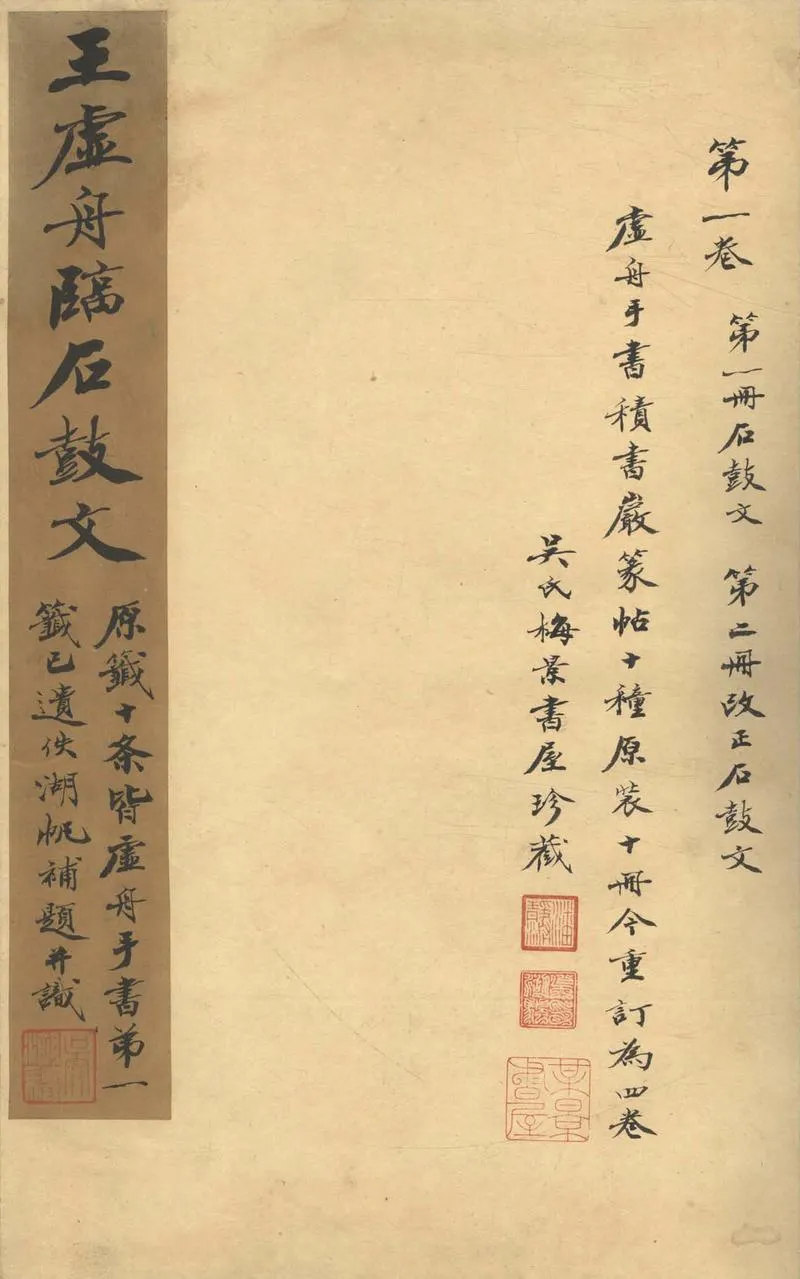 第一卷 第一冊石鼓文 第二冊改正石鼓文
虛舟手書積書巖篆帖十種原裝十冊今重訂為四卷
吳氏梅景書屋珍藏
某景書屋
王虛舟臨石鼓文
原籤十条皆虛舟手書第一
籤已遺佚湖帆補題并識